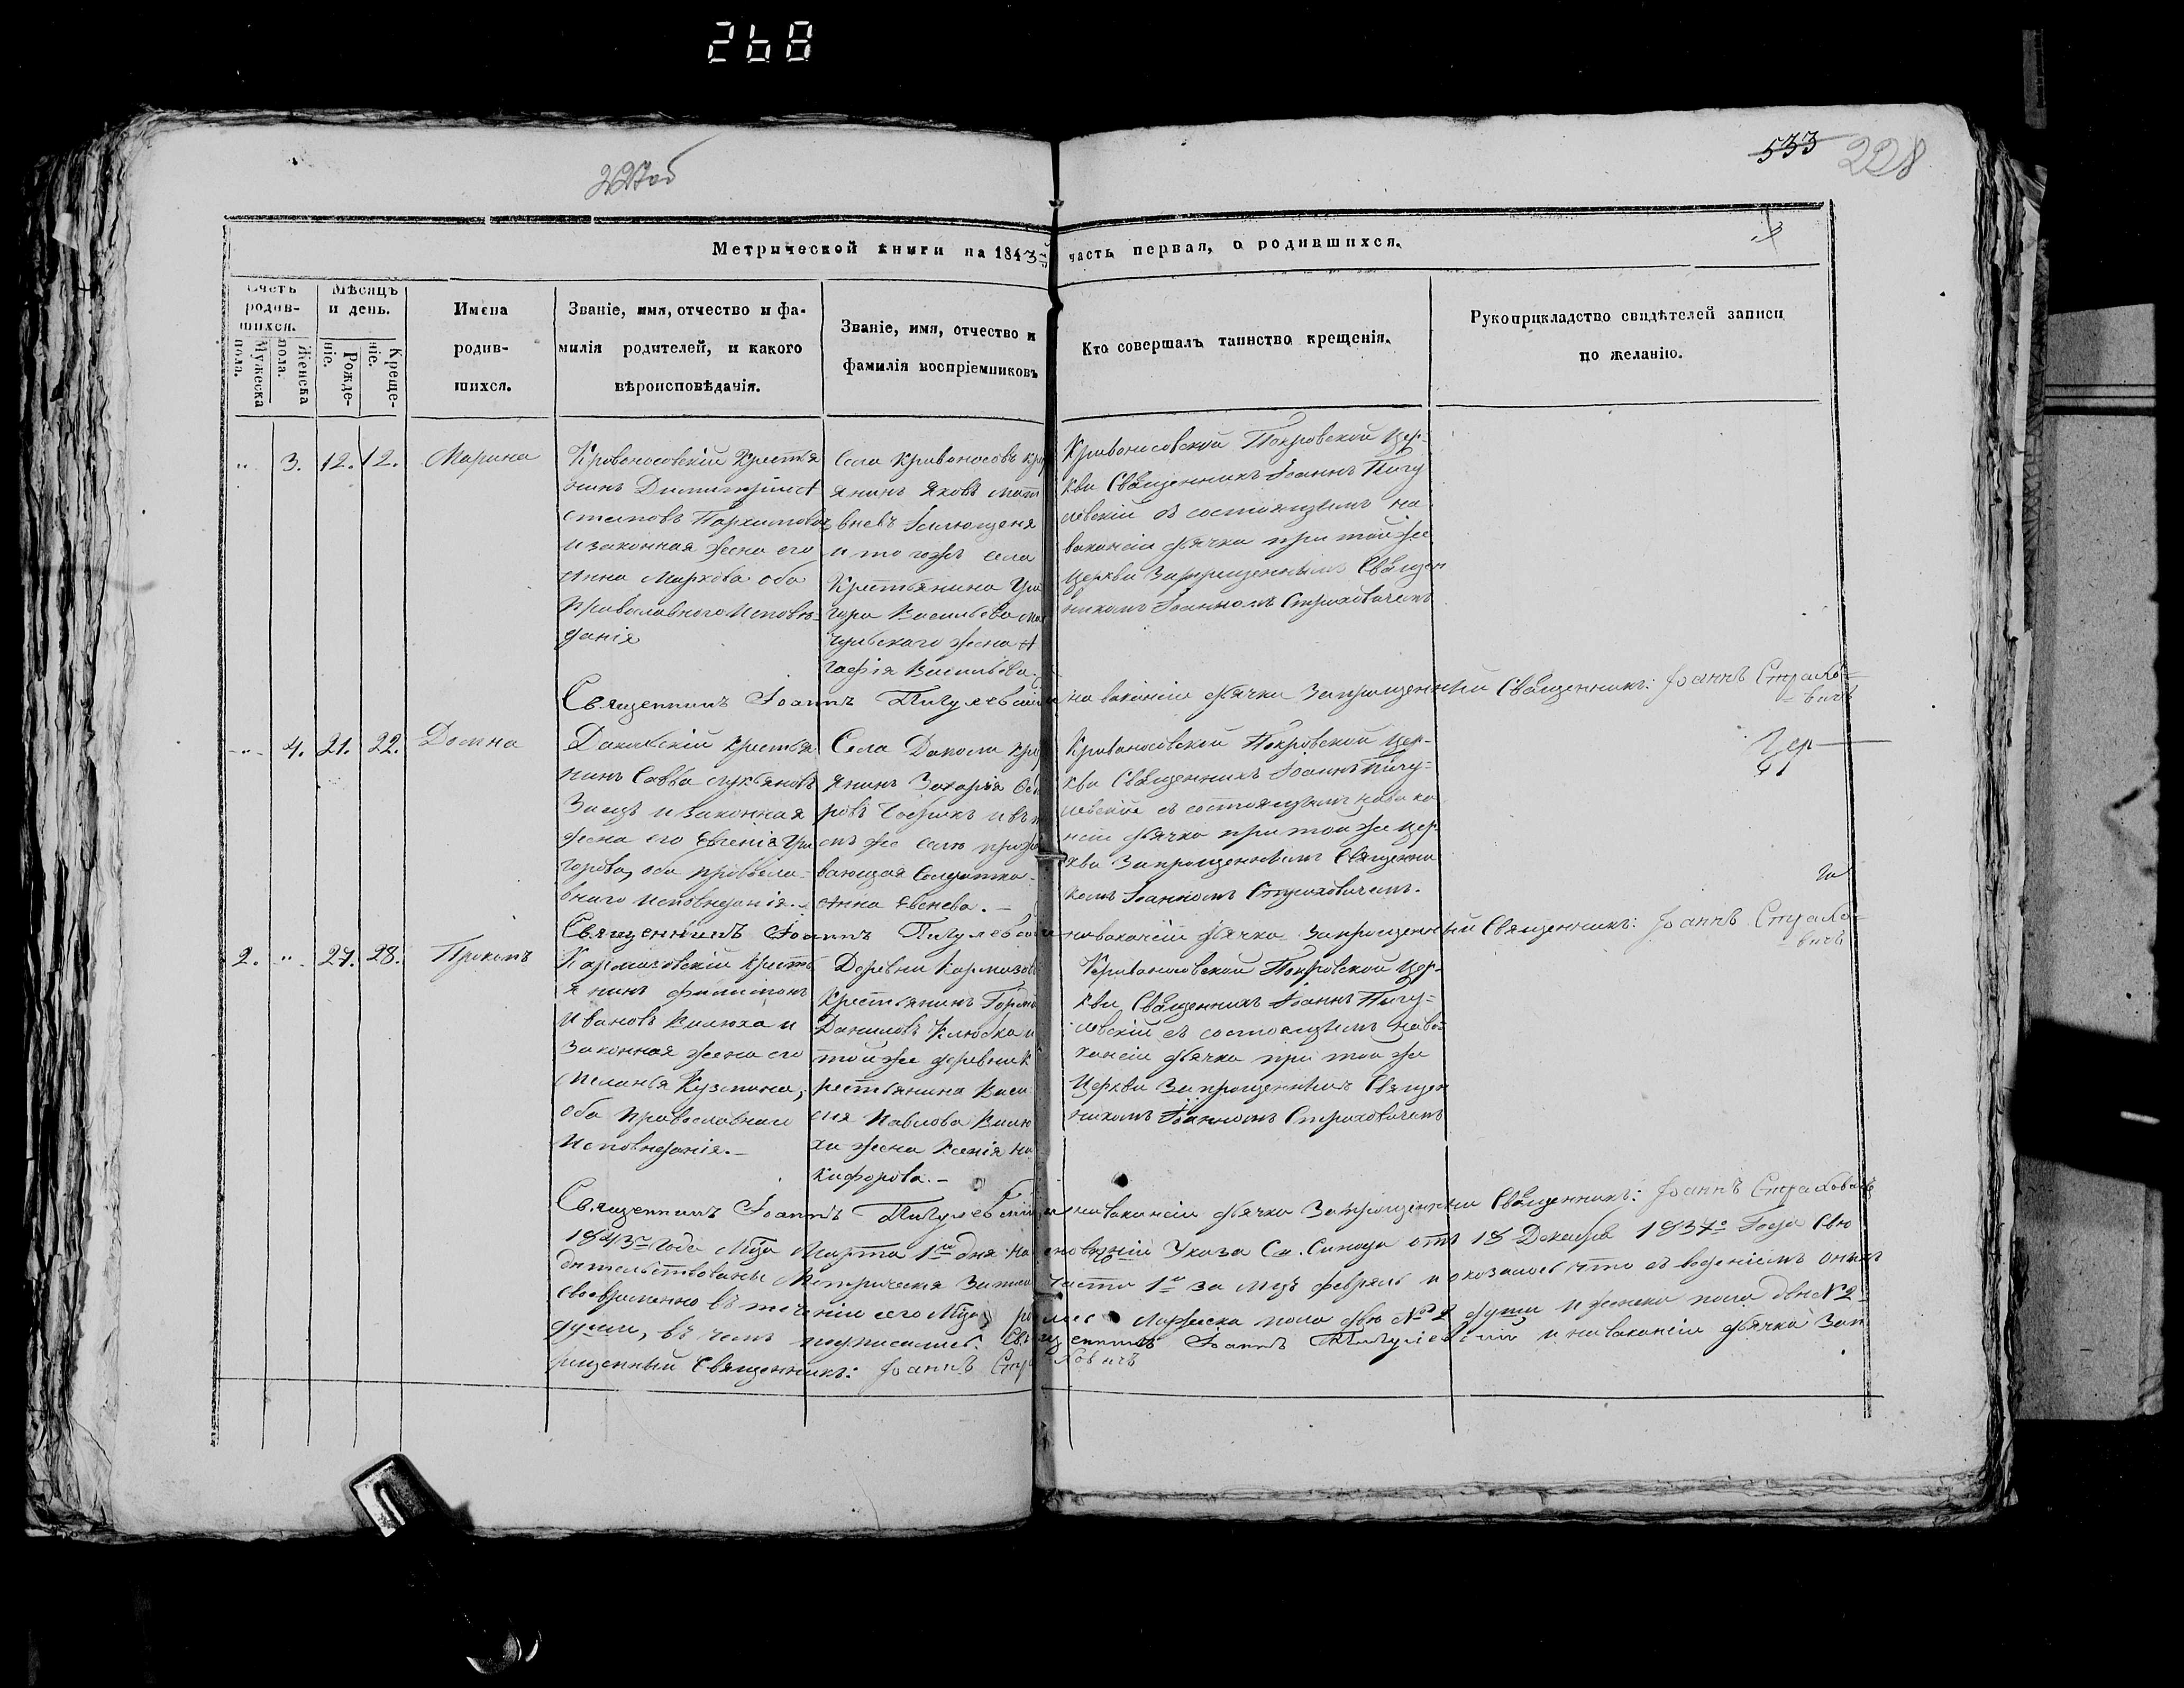 268
227об
533 228
Метрической книги на 1843й часть первая, о родившихся.
Счетъ родив-
шихся.
Мужеска пола.
Женска пола.
Мѣсяцъ и день.
Рожде-
ніе.
Креще-
ніе.
Имена
родив-
шихся.
Званіе, имя, отчество и фа-
милія родителей, и какого
вѣроисповѣданія.
Званіе, имя, отчество и
фамилія воспріемниковъ
Кто совершалъ таинство крещенія.
Рукоприкладство свидѣтелей записи
по желанію.
" 3. 12. 12. Марина
Кривоносовскій Крестья
нинъ Димитрій
Пархомова
и законная жена его
Анна Маркова оба
православнаго исповѣ-
данія
Села Кривоносовъ кре
янинъ Яковъ Мат
вѣевъ
и тогожъ села
Крестьянина Гри
гора Васильева
жена А
гафія Васильева.
Кривоносовской Покровской Цер-
кви Священникъ Іоаннъ Пигу
левскій съ состоящимъ на
вакансіи дьячка при той же
Церкви Запрещеннымъ Священ
никомъ Іоанномъ Страховичемъ
Священникъ Іоаннъ Пигулевскій и на вакансіи дьячка Запрещенный Священникъ: Іоаннъ Страхо-
вичъ
" 4. 21. 22. Домна
Крестья
нинъ Савва Лукьяновъ
Заецъ и законная
жена его Евгенія Гри
горова, оба православ-
внаго исповеданія.
Села Даколи Кре
янинъ Захарія
ровъ
омъ же селе прожи
вающая Солдатка
Анна Евсеева.
Кривоносовской Покровской Цер-
кви Священникъ Іоаннъ Пигу-
левскій съ состоящимъ на вака
нсіи дьячка при той же Цер
кви Запрещеннымъ Священни
комъ Іоанномъ Страховичемъ.
Священникъ Іоаннъ Пигулевскій и на вакансіи дьячка Запрещенный Священникъ: Іоаннъ Страхо-
вичъ
2. " 27. 28. Прокопъ
Кармазовскій Кресть
янинъ Филимонъ
Ивановъ Вилюха и
законная жена его
Меланья Кузмина,
оба православнаго
исповеданія.
Деревни Кармазов
Крестьянинъ Гордей
Даниловъ и
той же деревни К
рестьянина Васи
лія Павлова Вилю
хи жена Ксенія Ни
кифорова.
Кривоносовской Покровской Цер-
кви Священникъ Іоаннъ Пигу-
левскій съ состоящимъ на ва
кансіи дьячка при той же
Церкви Запрещеннымъ Священ
никомъ Іоанномъ Страховичемъ
Священникъ Іоаннъ Пигулевскій и на вакансіи дьячка Запрещенный Священникъ: Іоаннъ Страховичъ
1843го Года Мца Марта 1го дня на основаніи Указа Св. Синода отъ 18 Декабря 1837го Года Сви
дѣтельствованы Метрическія Записи части 1й за мцъ февраль и оказалось что съ веденіемъ оныхъ
своевременно въ теченіи сего Мца мужеска пола двѣ № 2 души и женска пола двѣ № 2
души, въ чемъ подписались: Священникъ Іоаннъ Пигулевскій и на вакансіи дьячка Зап
рещенный Священникъ: Іоаннъ Страховичъ